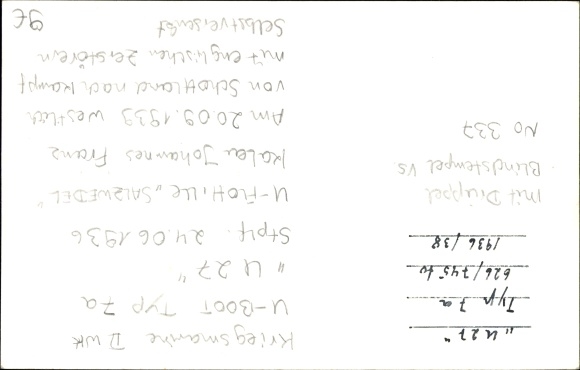 Kriegsmarine II WK
U-BOOT Typ 7a
"U 27"
Stpf. 24.06.1936
U-Flottille „SALZWEDEL"
Kala Johannes Franz
Am 20.09.1939 westlich
von Schottland nach kampf
mit englischen Zerstörern
Selbstversenkt
9€
"U 27"
Typ 7a
626/745 to
1936/38
mit Drüppel
Blindstempel Vs.
No 337